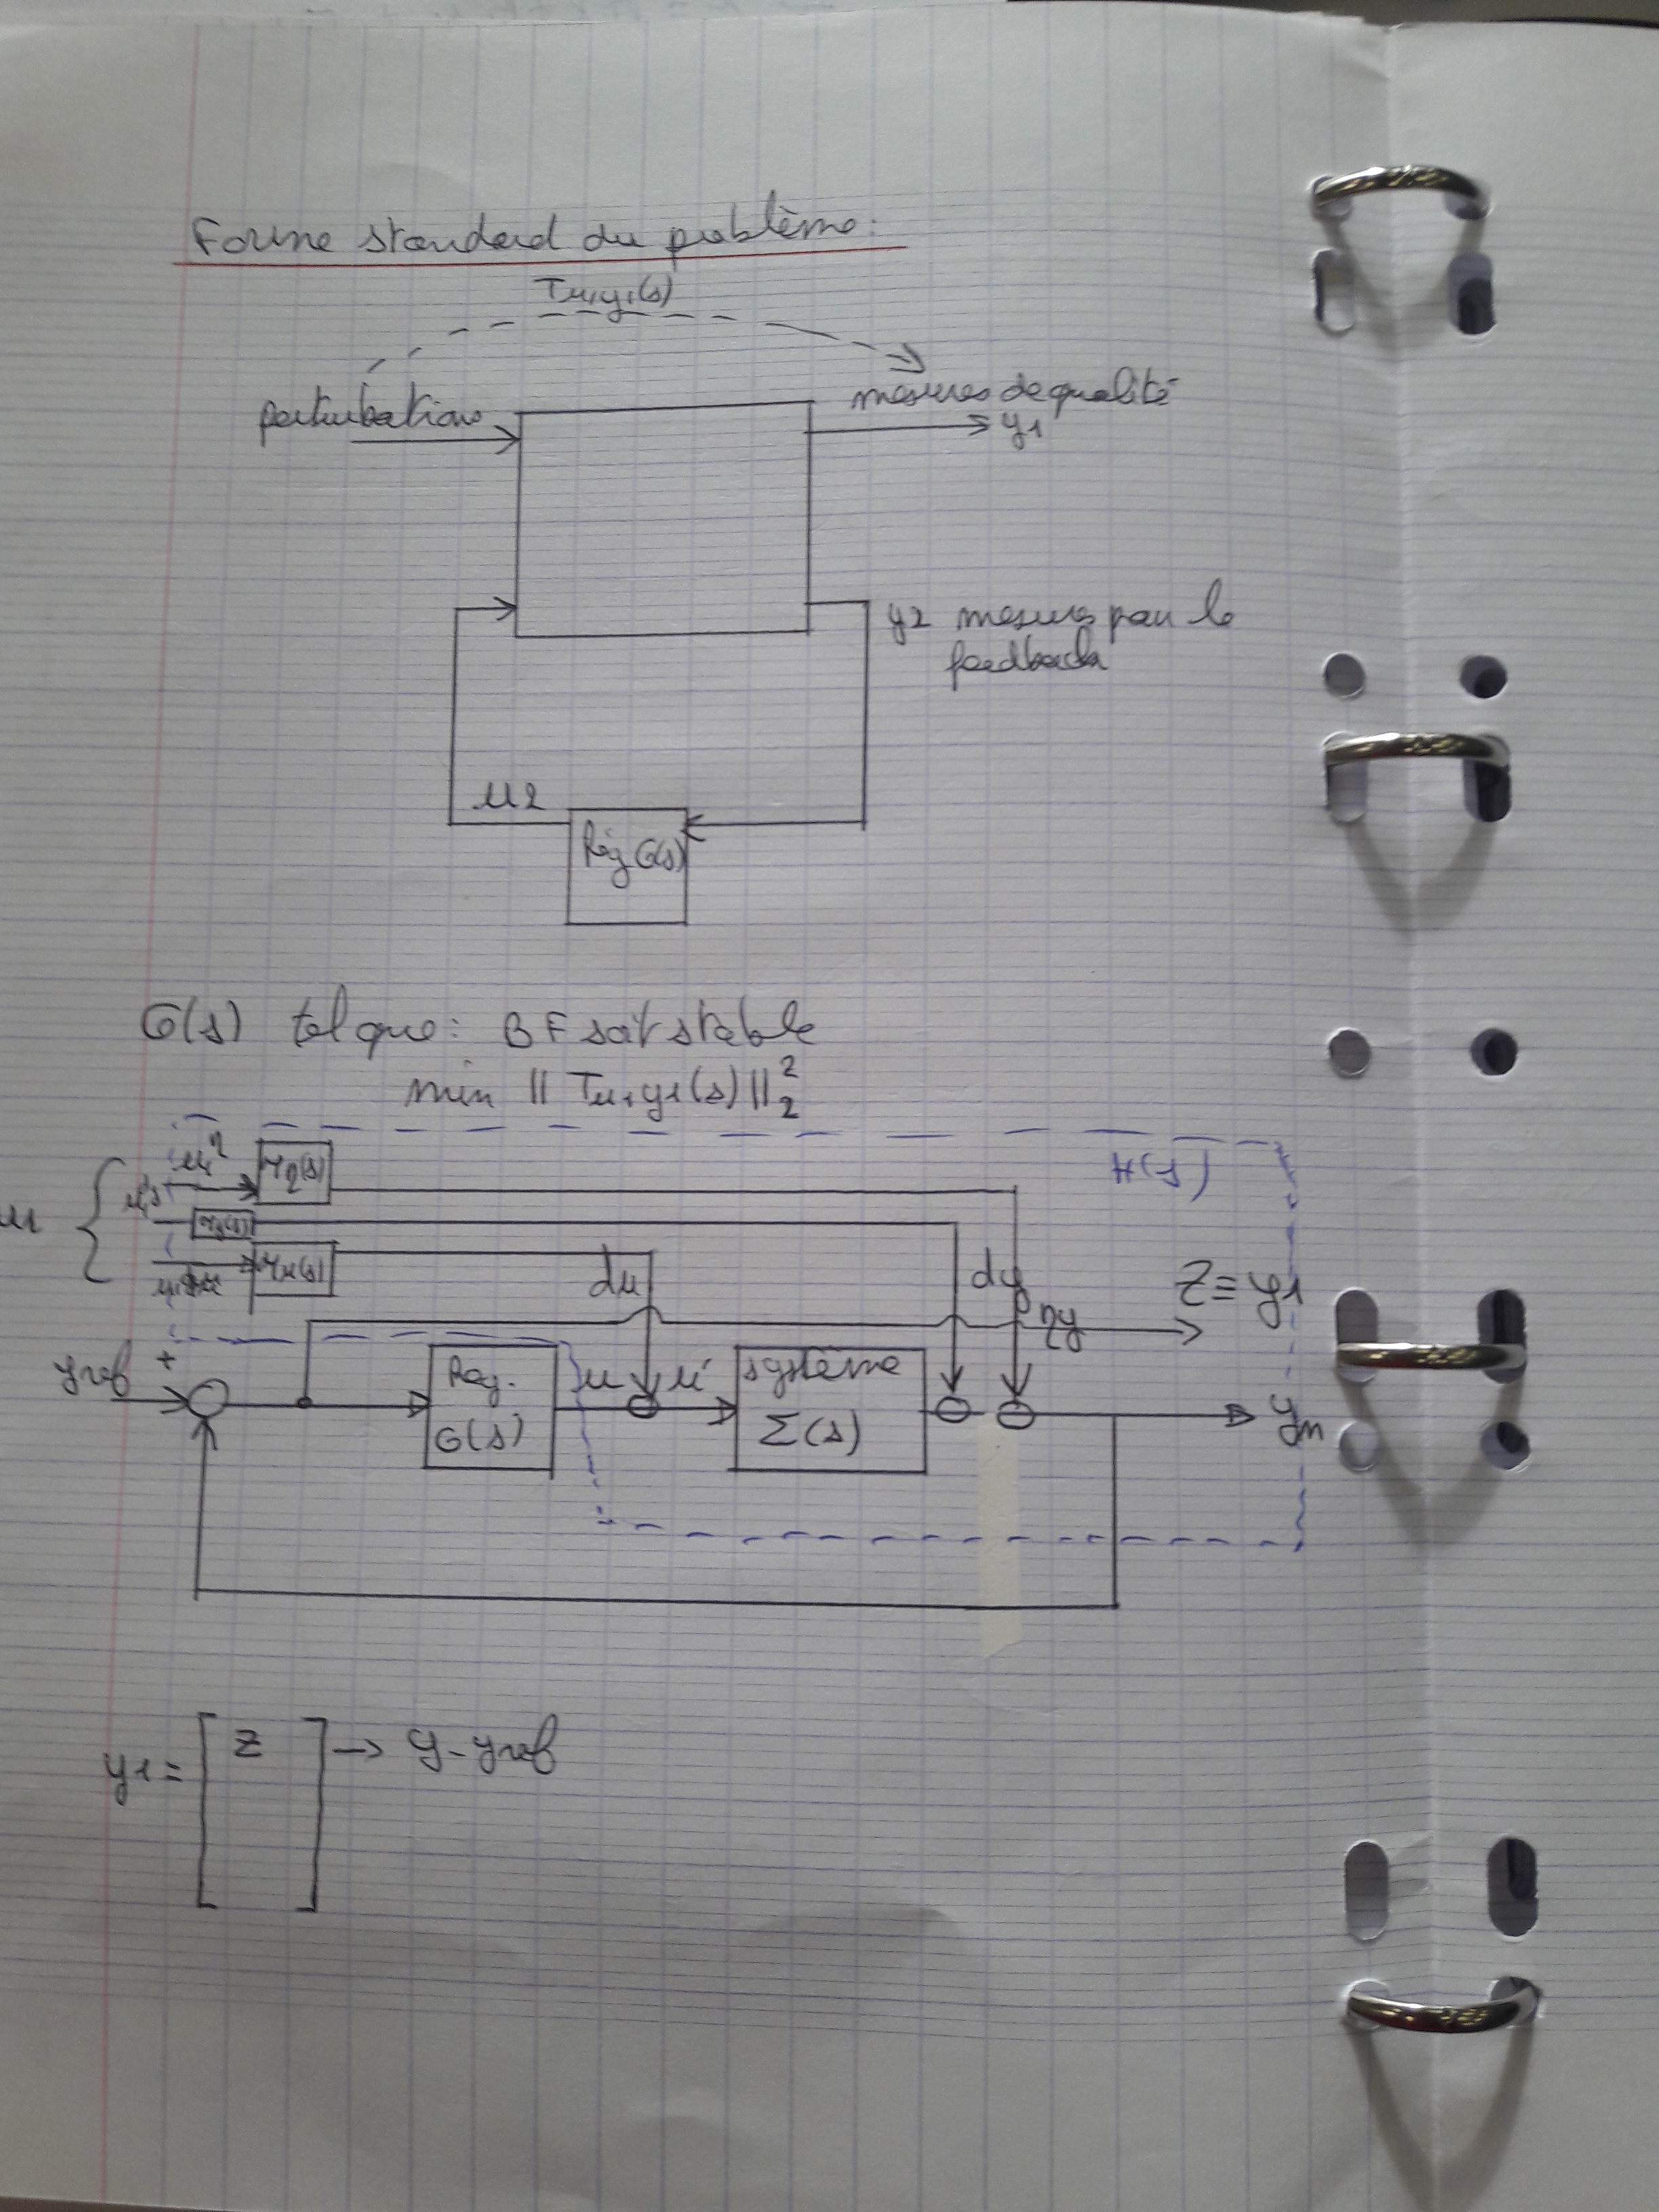 Forme standard du problème:
Tu1y1(s)
perturbations
mesures de qualité
y1
y2 mesures pour le
feedback
u2
Rég G(s)
G(s) tel que: BF soit stable
min || Tu1y1(s) ||₂²
H(s)
u1
du
dy
ηy
Z ≡ y1
yref +
Reg.
G(s)
u
u'
système
Σ(s)
ym
y1 = [ z ] → y - yref